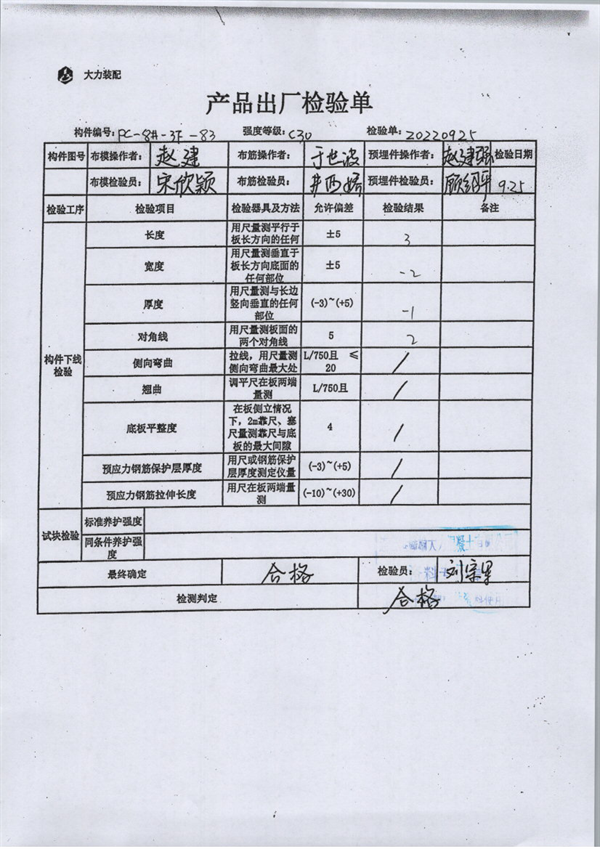 大力装配
产品出厂检验单
构件编号: PC-8#-3F-83 强度等级: C30 检验单: 20220925
构件图号 布模操作者: 赵建 布筋操作者: 于世波 预埋件操作者: 赵建强 检验日期
布模检验员: 宋欣颖 布筋检验员: 预埋件检验员: 9.25
检验工序 检验项目 检验器具及方法 允许偏差 检验结果 备注
构件下线检验
长度 用尺量测平行于板长方向的任何 ±5 3
宽度 用尺量测垂直于板长方向底面的任何部位 ±5 -2
厚度 用尺量测与长边竖向垂直的任何部位 (-3)~(+5) -1
对角线 用尺量测板面的两个对角线 5 2
侧向弯曲 拉线,用尺量测侧向弯曲最大处 L/750且 ≤20 /
翘曲 调平尺在板两端量测 L/750且 /
底板平整度 在板侧立情况下,2m靠尺、塞尺量测靠尺与底板的最大间隙 4 /
预应力钢筋保护层厚度 用尺或钢筋保护层厚度测定仪量 (-3)~(+5) /
预应力钢筋拉伸长度 用尺在板两端量测 (-10)~(+30) /
试块检验 标准养护强度
同条件养护强度
最终确定 合格 检验员:
检测判定 合格